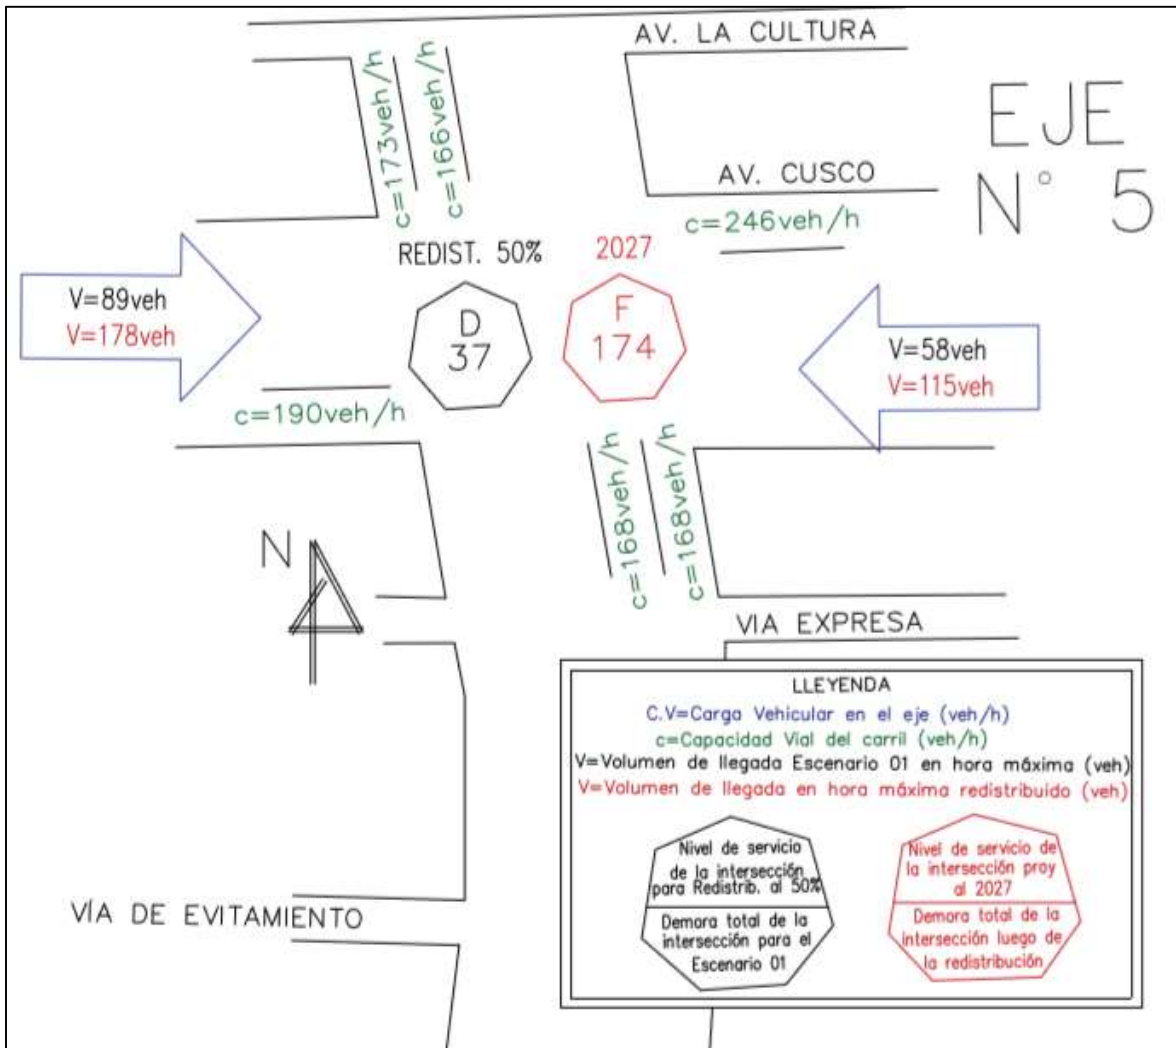 AV. LA CULTURA
EJE
N° 5
c=173veh/h
c=166veh/h
AV. CUSCO
c=246veh/h
REDIST. 50%
2027
V=89veh
V=178veh
D
37
F
174
V=58veh
V=115veh
c=190veh/h
c=168veh/h
c=168veh/h
N
VIA EXPRESA
LLEYENDA
C.V=Carga Vehicular en el eje (veh/h)
c=Capacidad Vial del carril (veh/h)
V=Volumen de llegada Escenario 01 en hora máxima (veh)
V=Volumen de llegada en hora máxima redistribuido (veh)
Nivel de servicio
de la intersección
para Redistrib. al 50%
Demora total de la
intersección para el
Escenario 01
Nivel de servicio de
la intersección proy
al 2027
Demora total de la
intersección luego de
la redistribución
VÍA DE EVITAMIENTO